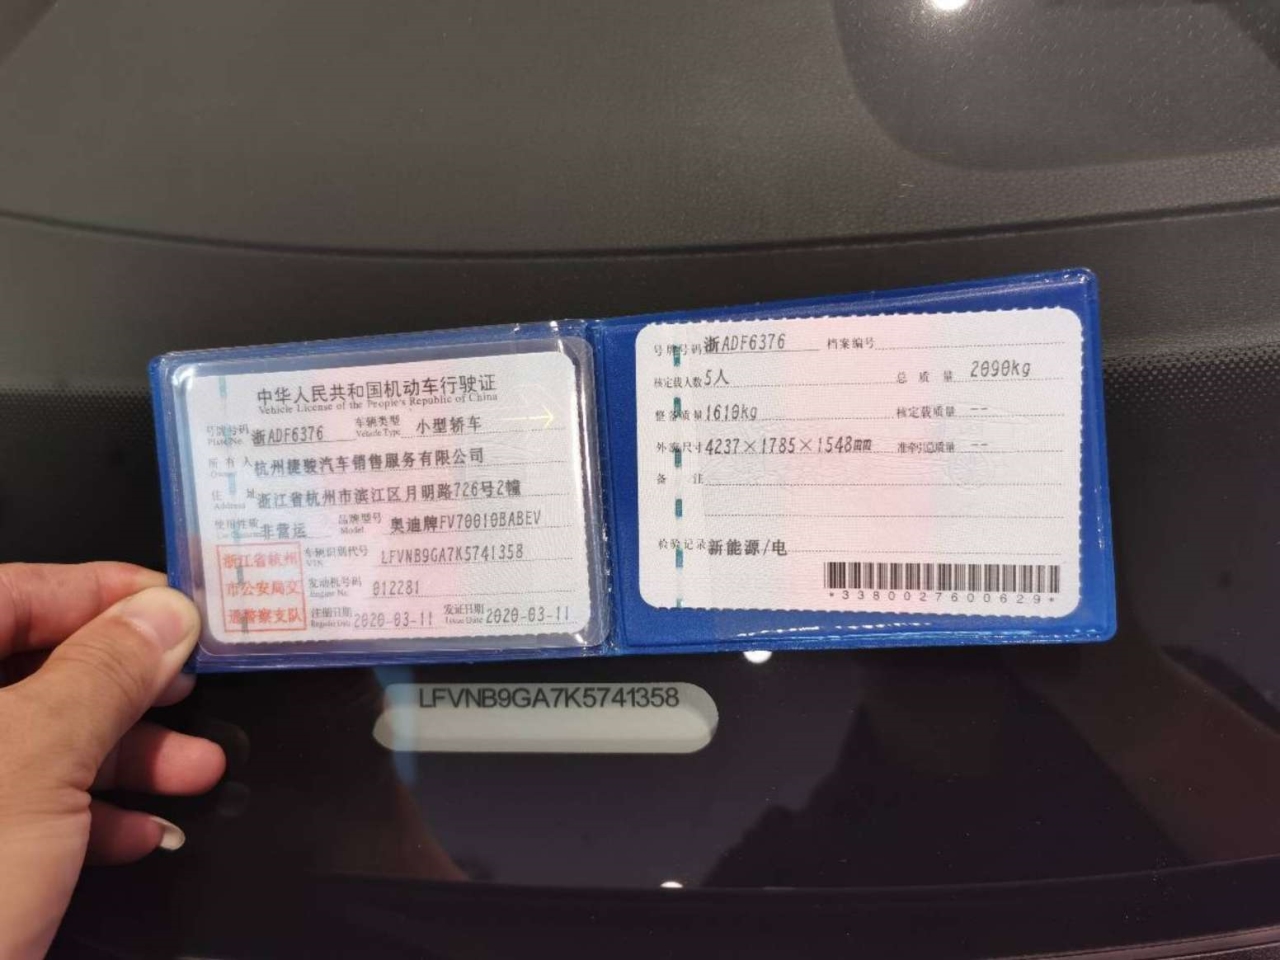 中华人民共和国机动车行驶证
Vehicle License of the People's Republic of China
号牌号码 Plate No. 浙ADF6376 车辆类型 Vehicle Type 小型轿车
所有人 Owner 杭州捷骏汽车销售服务有限公司
住址 Address 浙江省杭州市滨江区月明路726号2幢
使用性质 非营运 品牌型号 Model 奥迪牌FV7001BABEV
浙江省杭州
市公安局交
通警察支队
车辆识别代号 VIN LFVNB9GA7K5741358
发动机号码 Engine No. 012281
注册日期 2020-03-11 发证日期 Issue Date 2020-03-11
号牌号码 浙ADF6376 档案编号
核定载人数 5人 总质量 2090kg
整备质量 1610kg 核定载质量 --
外廓尺寸 4237×1785×1548 准牵引总质量 --
备注
检验记录 新能源/电
*3380027600629*
LFVNB9GA7K5741358